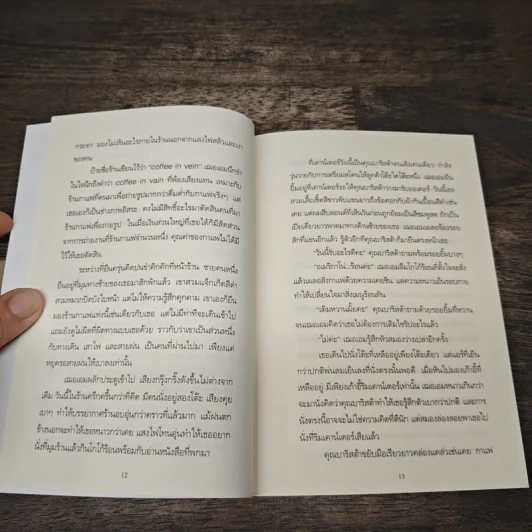 กระจก มองไม่เห็นอะไรภายในร้านนอกจากแสงไฟสลัวและเงา
ของคน
ป้ายชื่อร้านเขียนไว้ว่า “coffee in vein” เฌอเอมนึกขำ
ในใจนึกถึงคำว่า coffee in vain ที่พ้องเสียงแทน เหมาะกับ
ร้านกาแฟที่คนมาเพื่อถ่ายรูปมากกว่าดื่มด่ำกับกาแฟจริงๆ แต่
เธอเองก็เป็นช่างภาพอิสระ คงไม่มีสิทธิ์อะไรมาตัดสินคนที่มา
ร้านกาแฟเพื่อถ่ายรูป ในเมื่อเงินส่วนใหญ่ที่เธอได้ก็มีสัดส่วน
จากการถ่ายงานที่ร้านกาแฟจำนวนหนึ่ง คุณค่าของกาแฟไม่ได้มี
ไว้ให้เธอตัดสิน
ระหว่างที่ยืนครุ่นคิดปนขำคักคักที่หน้าร้าน ชายคนหนึ่ง
ยืนอยู่ที่มุมทางซ้ายของเธอมาสักพักแล้ว เขาสวมแจ็กเก็ตสีดำ
สวมหมวกปิดบังใบหน้า แต่ไม่ให้ความรู้สึกคุกคาม เขาเองก็ยืน
มองร้านกาแฟแห่งนี้เช่นเดียวกับเธอ แต่ไม่มีท่าทีจะเดินเข้าไป
แถมยังดูไม่ผิดที่ผิดทางแบบเธอด้วย ราวกับว่าเขาเป็นส่วนหนึ่ง
กับทางเดิน เสาไฟ และสายฝน เป็นคนที่ผ่านไปมา เพียงแต่
หยุดรอสายฝนให้เบาลงเท่านั้น
เฌอเอมผลักประตูเข้าไป เสียงกรุ๊งกริ๊งดังขึ้นไม่ต่างจาก
เดิม วันนี้ในร้านครึกครื้นกว่าที่คิด มีคนนั่งอยู่สองโต๊ะ เสียงคุย
เบาๆ ทำให้บรรยากาศร้านอบอุ่นกว่าคราวที่แล้วมาก แม้ฝนตก
ข้างนอกจะทำให้เธอหนาวกว่าเคย แสงไฟโทนอุ่นทำให้เธออยาก
นั่งที่มุมร้านแล้วกินโกโก้ร้อนพร้อมกับอ่านหนังสือที่พกมา
12
ที่เคาน์เตอร์วันนี้เป็นคุณบาริสต้าคนเดิมคนเดียว กำลัง
วุ่นวายกับการเตรียมสโคนให้ลูกค้าโต๊ะใดโต๊ะหนึ่ง เฌอเอมยืน
ยิ้มอยู่ที่เคาน์เตอร์รอให้คุณบาริสต้าว่างมารับออเดอร์ วันนี้เธอ
สวมเสื้อเชิ้ตสีขาวพับแขนยาวถึงข้อศอกกับผ้ากันเปื้อนสีดำเช่น
เคย
สักที่แขนอีกแล้ว รู้ตัวอีกทีคุณบาริสต้าก็มายืนตรงหน้าเธอ
“วันนี้รับอะไรดีคะ” คุณบาริสต้าถามพร้อมรอยยิ้มบางๆ
แล้วเผลอสั่งกาแฟด้วยความเคยชิน แต่ความหนาวเย็นรอบกาย
ทำให้เปลี่ยนใจมาสั่งเมนูร้อนแทน
“เติมหวานมั้ยคะ” คุณบาริสต้าถามด้วยรอยยิ้มที่หวาน
จนเฌอเอมคิดว่าเธอไม่ต้องการเติมไซรัปอะไรแล้ว
“ไม่ค่ะ” เฌอเอมรู้สึกหัวสมองว่างเปล่าอีกครั้ง
เธอเดินไปนั่งโต๊ะที่เหลืออยู่เพียงโต๊ะเดียว แต่แอร์ที่เย็น
กว่าปกติพ่นลมเย็นลงที่นั่งตรงนั้นพอดี เมื่อหันไปมองเก้าอี้ที่
เหลืออยู่ มีเพียงเก้าอี้ริมเคาน์เตอร์เท่านั้น เฌอเอมหนาวเกินกว่า
จะมานั่งคิดว่าคุณบาริสต้าทำให้เธอรู้สึกตัวเบากว่าปกติ และการ
นั่งตรงนี้อาจจะไม่ใช่ความคิดที่ดีนัก แต่สมองล่องลอยพาเธอไป
นั่งที่ริมเคาน์เตอร์เสียแล้ว
คุณบาริสต้าขยับมือเรียวยาวคล่องแคล่วเช่นเคย กาแฟ
13